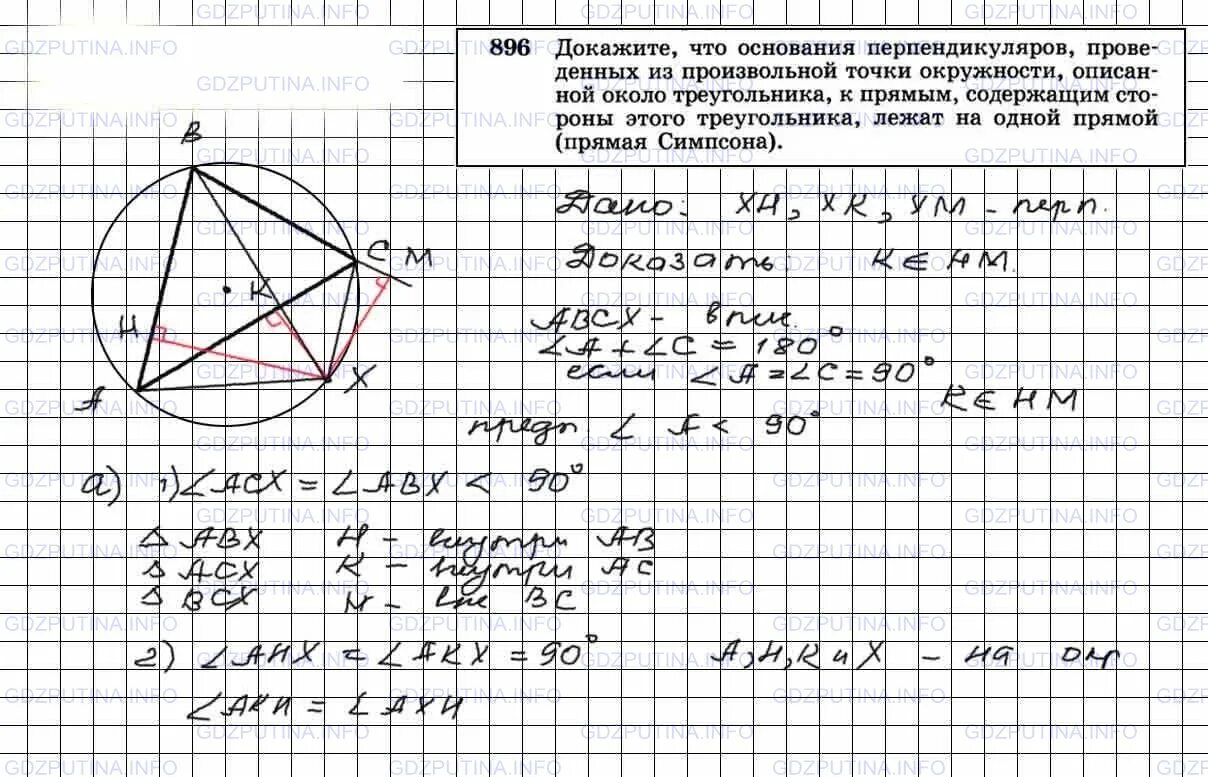 GDZPUTINA.INFO
896 Докажите, что основания перпендикуляров, прове-
денных из произвольной точки окружности, описан-
ной около треугольника, к прямым, содержащим сто-
роны этого треугольника, лежат на одной прямой
(прямая Симпсона).
B
C M
K
H
X
A
Дано: XH, XK, XM - перп.
Доказать: K ∈ HM.
ABCX - впис.
∠A + ∠C = 180°
если ∠A = ∠C = 90°
K ∈ HM
предп. ∠ A < 90°
а) 1) ∠ACX = ∠ABX < 90°
△ ABX H - внутри AB
△ ACX K - внутри AC
△ BCX M - вне BC
2) ∠AHX = ∠AKX = 90° A, H, K и X - на окр
∠AKH = ∠AXH